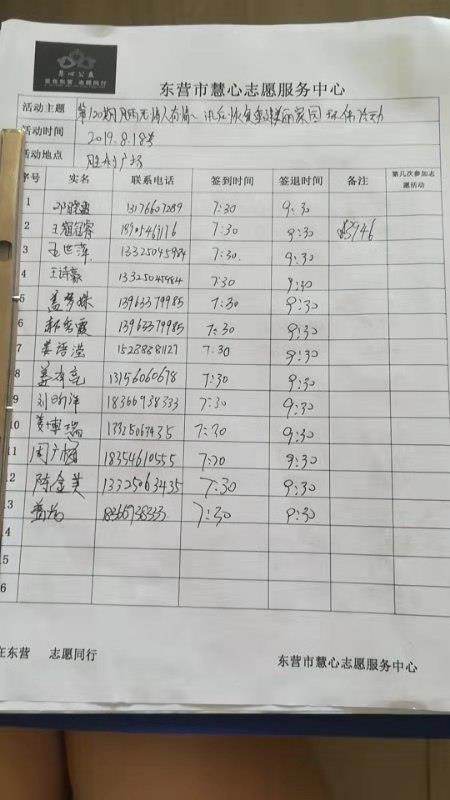 慧心公益
爱在东营 志愿同行
东营市慧心志愿服务中心
活动主题 第120期 风雨无情人有情 重建美丽家园 环保活动
活动时间 2019.8.18号
活动地点 胜利广场
序号 实名 联系电话 签到时间 签退时间 备注 第几次参加志愿活动
1 13176607289 7:30 9:30
2 7:30 9:30
3 王世萍 13325045984 7:30. 9:30
4 王诗 13325045984 7:30 9:30
5 孟梦姝 13963379985 7:30 9:30
6 郝秀霞 13963379985 7:30 9:30
7 姜 15288881127 7:30 9:30
8 姜有亮 13156060678 7:30 9:30
9 刘昕洋 18366938333 7:30 9:30
10 黄博瑞 13325063435 7:30 9:30
11 周广 18354610555 7:30 9:30
12 陈金美 13325063435 7:30 9:30
13 7:30 9:30
14
15
6
在东营 志愿同行 东营市慧心志愿服务中心